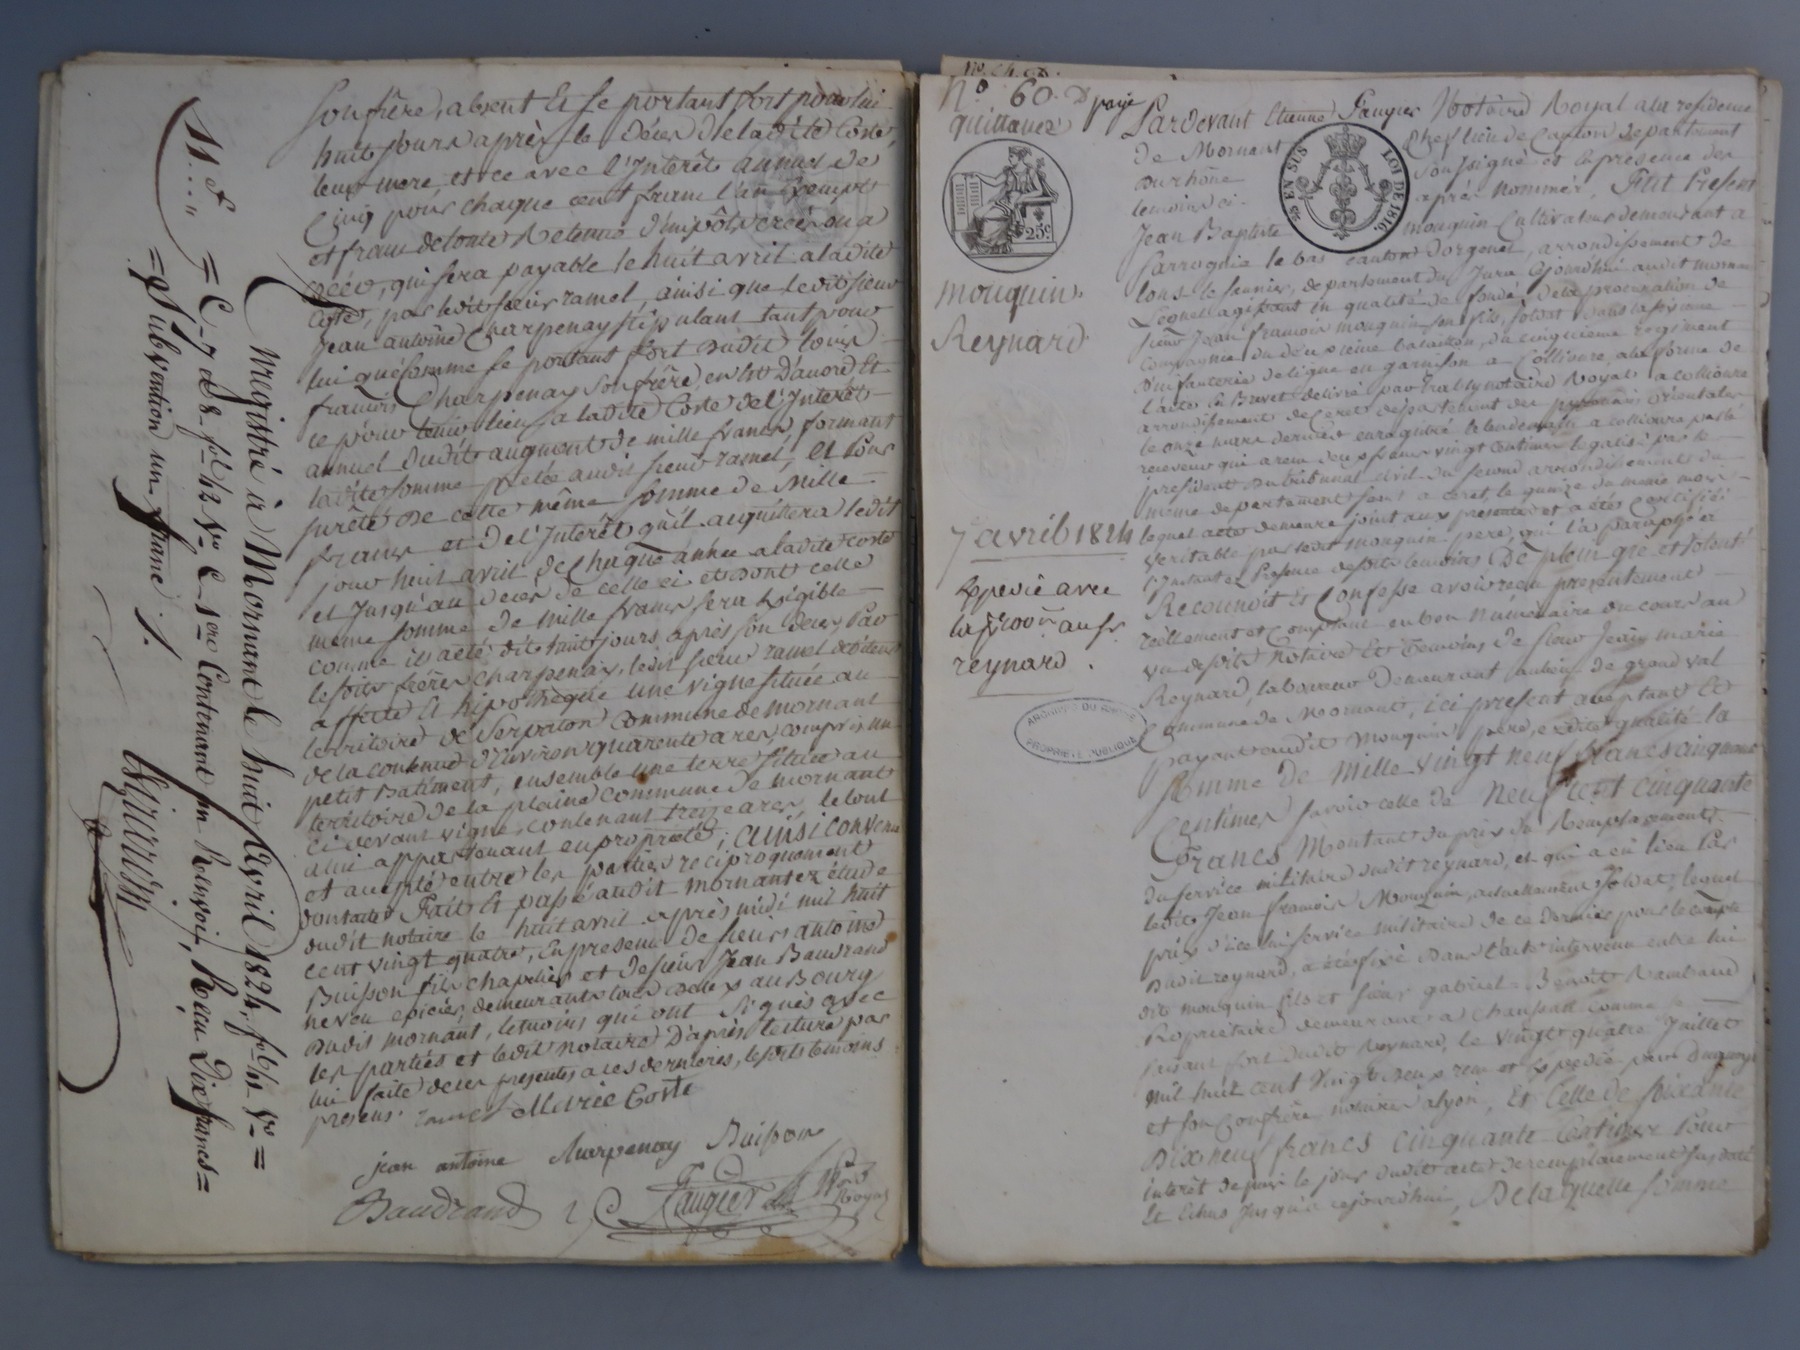 son frère, absent et se portant fort pour lui
huit jours après le décès de ladite Coste,
leur mere, et ce avec l'Interêt annuel de
cinq pour chaque cent francs l'an exempt
et franc de toute Retenue d'impôts créés ou a
créér, qui sera payable le huit avril a ladite
Coste, par ledit sieur ramel, ainsi que ledit sieur
Jean antoine Charpenay stipulant tant pour
lui que comme se portant fort dudit
francois Charpenay son frère,
ce pour tenir lieu a ladite Coste de l'Interêt
annuel dudit augment de mille francs formant
ladite somme prêtée audit sieur ramel, Et Pour
sureté de cette même somme de Mille
francs et de l'Interêt qu'il acquittera ledit
jour huit avril de chaque année a ladite Coste
et jusqu'au décès de celle ci et dont celle
même somme de mille francs sera exigible
comme il a été dit huit jours après son decès, Par
lesdits frères Charpenay, ledit sieur ramel
affecte et hipothèque une vigne située au
territoire de Servaton Commune de mornant
de la contenue d'environ quarente ares, compris un
petit Batiment, ensemble une terre située au
territoire de la plaine commune de mornant
ci devant vigne, contenant treize ares, le tout
a lui appartenant en propriété; ainsi convenu
et accepté entre les parties reciproquement
dont acte Fait et passé audit mornant ez étude
dudit notaire le huit avril après midi mil huit
cent vingt quatre, En presence de sieurs antoine
Buisson fils chapelier et de sieur Jean Baudrand
neveu epicier, demeurants tous deux au Bourg
dudit mornant, temoins qui ont signés avec
les parties et ledit notaire D'après lecture par
lui faite de ces presentes a ces dernieres, lesdits temoins
presens. ramel Marie Coste
jean antoine Charpenay Buisson
Baudrand Faugier Nre Royal
11 f
Enregistré à Mornant le huit Avril 1824, fo 61 Vo =
= C. 7 & 8 fo 12 Vo C 1ere Contenant un Renvoi, Reçu Dix francs =
= Subvention un franc ./.
No 60
quittance
payé
25c
mouquin
Reynard
7 avril 1824
Expedié avec
reynard.
ARCHIVES DU RHÔNE
PROPRIÉTÉ PUBLIQUE
EN SUS
LOI DE 1816.
Pardevant Etienne Faugier Notaire Royal a la residence
de Mornant Chef lieu de Canton departement
du rhône soussigné et En presence des
temoins ci-après nommés, Fut Present
Jean Baptiste mouquin Cultivateur demeurant a
Sarrognia le bas canton d'orgenet, arrondissement de
Lons-le saunier, departement du Jura Cejourd'hui audit mornant
Lequel agissant en qualité de fondé de la procuration de
sieur Jean francois mouquin son fils, soldat dans la sixieme
Compagnie du deuxieme bataillon, du cinquieme regiment
d'infanterie de ligne en garnison a Collioure, a la forme de
l'acte En Brevet delivré par Trably notaire Royal a collioure
arrondissement de Ceret departement des pyrenées orientales
le onze mars dernier enregistré le lendemain a collioure par le
receveur qui a reçu deux francs vingt centimes legalisé par le
president du tribunal civil du second arrondissement du
même departement seant a ceret, le quinze du même mois
lequel acte demeure joint aux presentes et a été Certifié
veritable par ledit mouquin pere, qui l'a paraphé a
l'instant ez Presence desdits temoins De plein gré et volonté
Reconnoit et Confesse avoir reçu presentement
reellement et comptant en bon numeraire du cours au
vu desdits Notaire Et Temoins, de sieur Jean marie
Reynard, laboureur demeurant au lieu de grand val
Commune de Mornant, ici present acceptant et
payant audit Mouquin père, ez dite qualité la
somme de Mille vingt neuf francs cinquante
Centimes savoir celle de Neuf cent cinquante
Francs Montant du prix du Remplacement
du service militaire dudit reynard, et qui a eu lieu Par
ledit Jean francois Mouquin, actuellement soldat, lequel
prix d'icelui service militaire de ce dernier pour le compte
dudit reynard, a été fixé dans l'acte intervenu entre lui
dit mouquin fils et sieur gabriel Benoît Rambaud
Propriétaire demeurant a Chanssan Comme se
faisant fort dudit Reynard, le vingt quatre Juillet
mil huit cent vingt deux recu et expedié par Dugueyt
et son Confrère notaires a lyon, Et Celle de soixante
Dix neuf francs cinquante Centimes Pour
interêt depuis le jour dudit acte de remplacement susdaté
Et Echus jusqu'a cejourd'hui, De laquelle somme